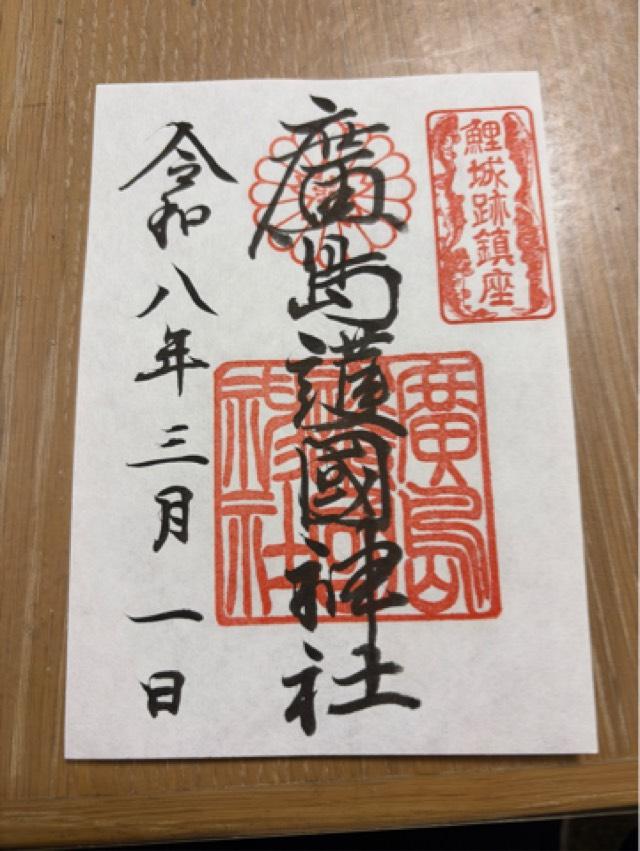 鯉城跡鎮座
廣島護國神社
廣島護國神社
令和八年三月一日